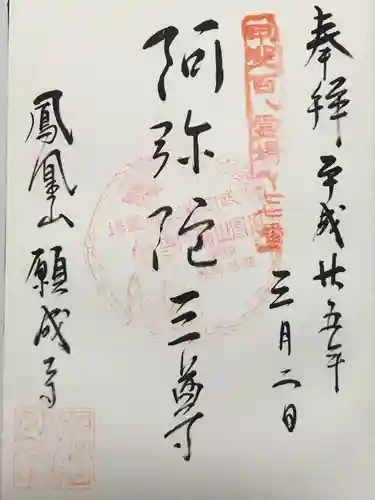 奉拝 平成廿五年
三月二日
甲斐百八霊場六十七番
阿弥陀三尊
鳳凰山願成寺